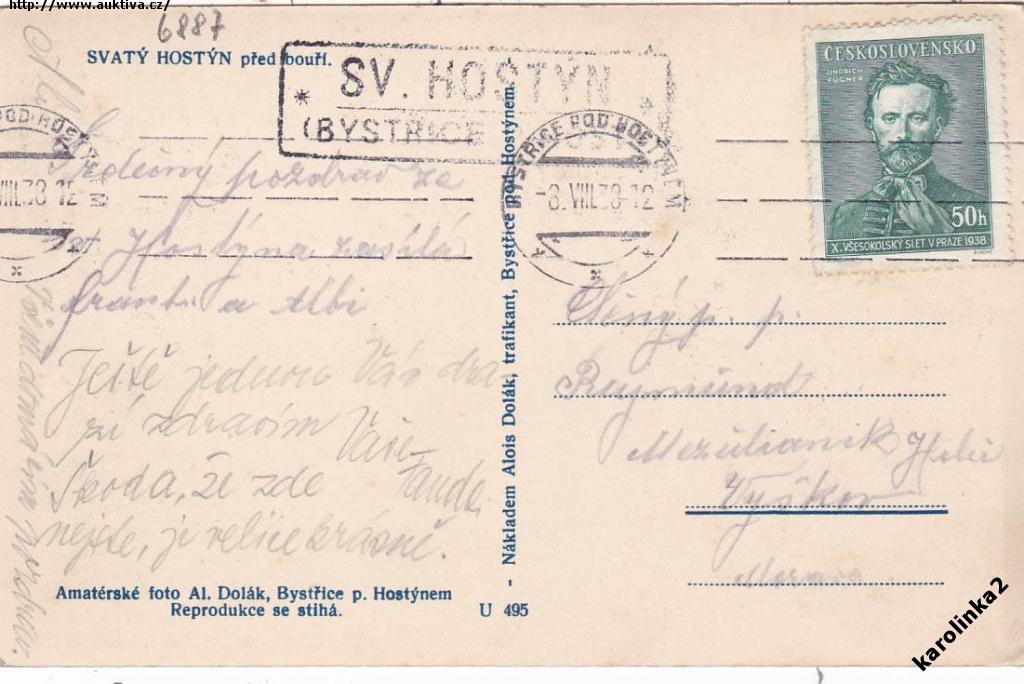 http://www.auktiva.cz/
6887
SVATÝ HOSTÝN před bouří.
* SV. HOSTÝN *
(BYSTŘICE
POD HOSTÝNEM
VIII.38-12
BYSTŘICE POD HOSTÝNEM
-8.VIII.38-12
ČESKOSLOVENSKO
JINDŘICH
FÜGNER
50h
X. VŠESOKOLSKÝ SLET V PRAZE 1938
Srdečný pozdrav ze
st Hostýna zasílá
Frant. a Albi
Ještě jednou Vás dra
zí zdravím Vaše
Škoda, že zde Fanda.
nejste, je velice krásně.
Nákladem Alois Dolák, trafikant, Bystřice pod Hostýnem.
Ctěný p. p.
Raymund
Mezulianik
Vyškov
Morava
Amatérské foto Al. Dolák, Bystřice p. Hostýnem
Reprodukce se stihá.
U 495
karolinka2